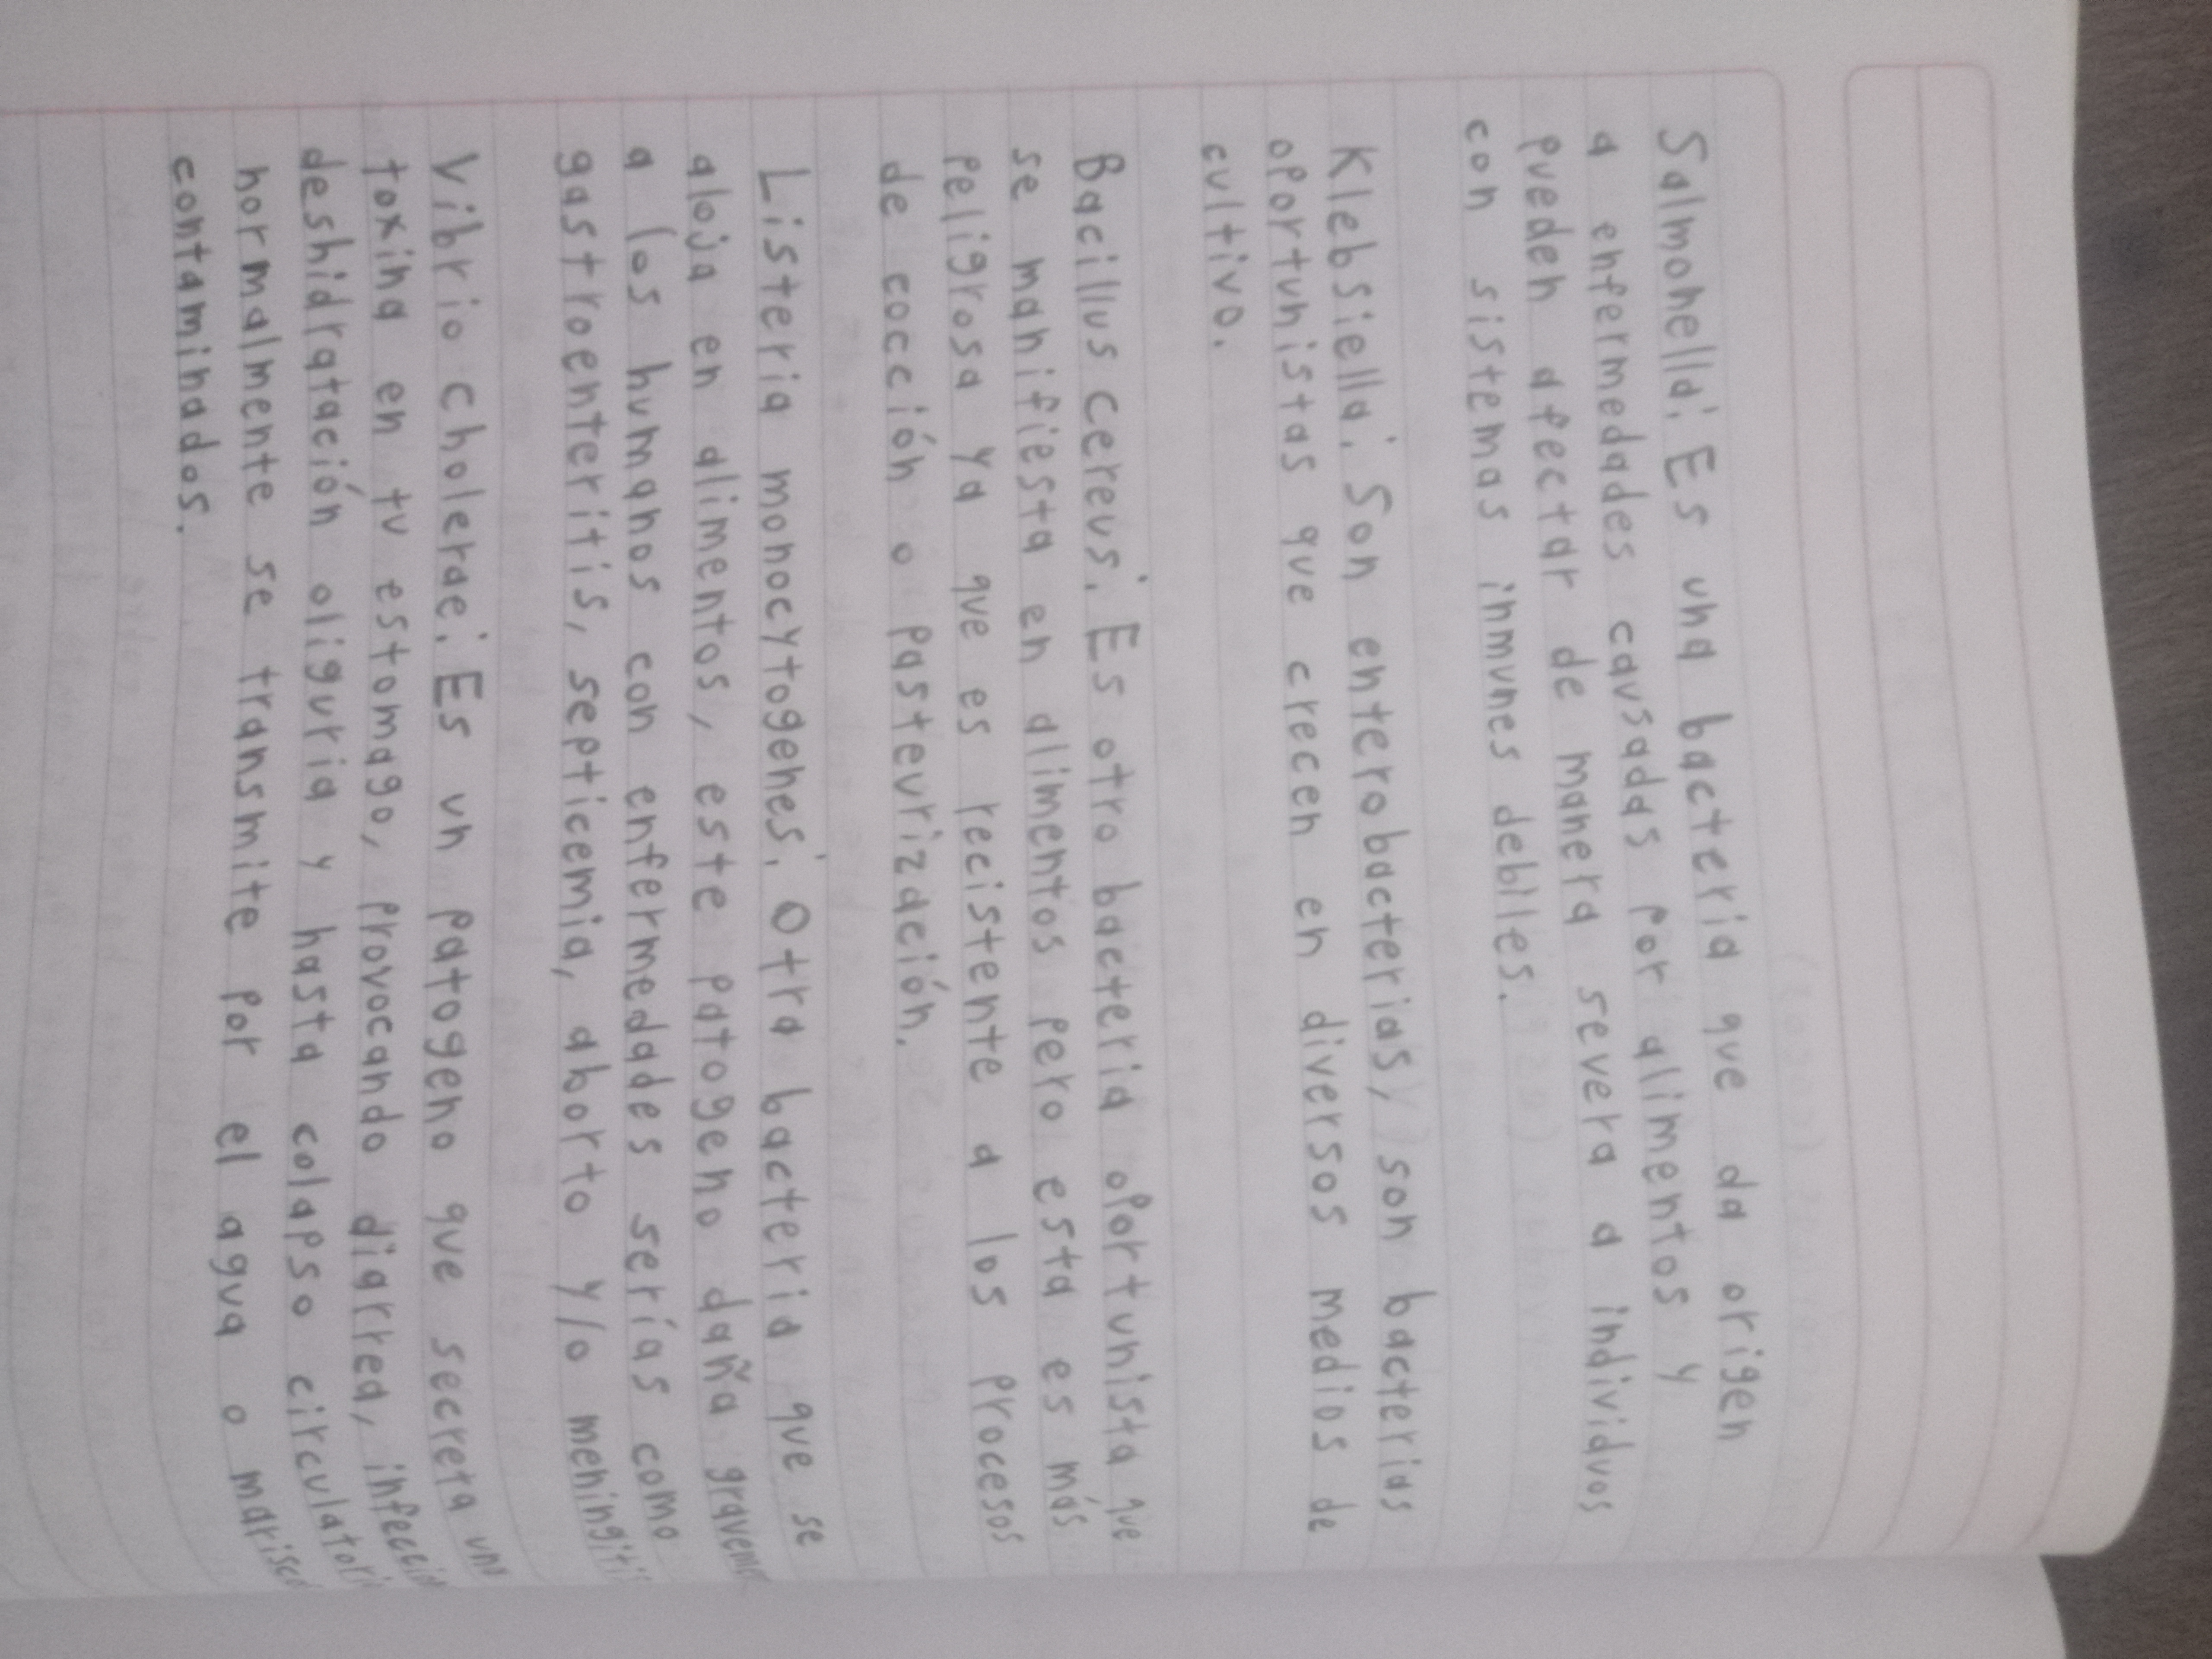 Salmonella: Es una bacteria que da origen
a enfermedades causadas por alimentos y
pueden afectar de manera severa a individuos
con sistemas inmunes debiles.
Klebsiella: Son enterobacterias, son bacterias
oportunistas que crecen en diversos medios de
cultivo.
Bacillus cereus: Es otro bacteria oportunista que
se manifiesta en alimentos pero esta es más
peligrosa ya que es recistente a los procesos
de cocción o pasteurización.
Listeria monocytogenes: Otra bacteria que se
aloja en alimentos, este patogeno daña
a los humanos con enfermedades serías como
gastroenteritis, septicemia, aborto y/o meningitis
Vibrio cholerae: Es un patogeno que secreta una
toxina en tu estomago, provocando diarrea,
deshidratación oliguria y hasta colapso
normalmente se transmite por el agua o
contaminados.